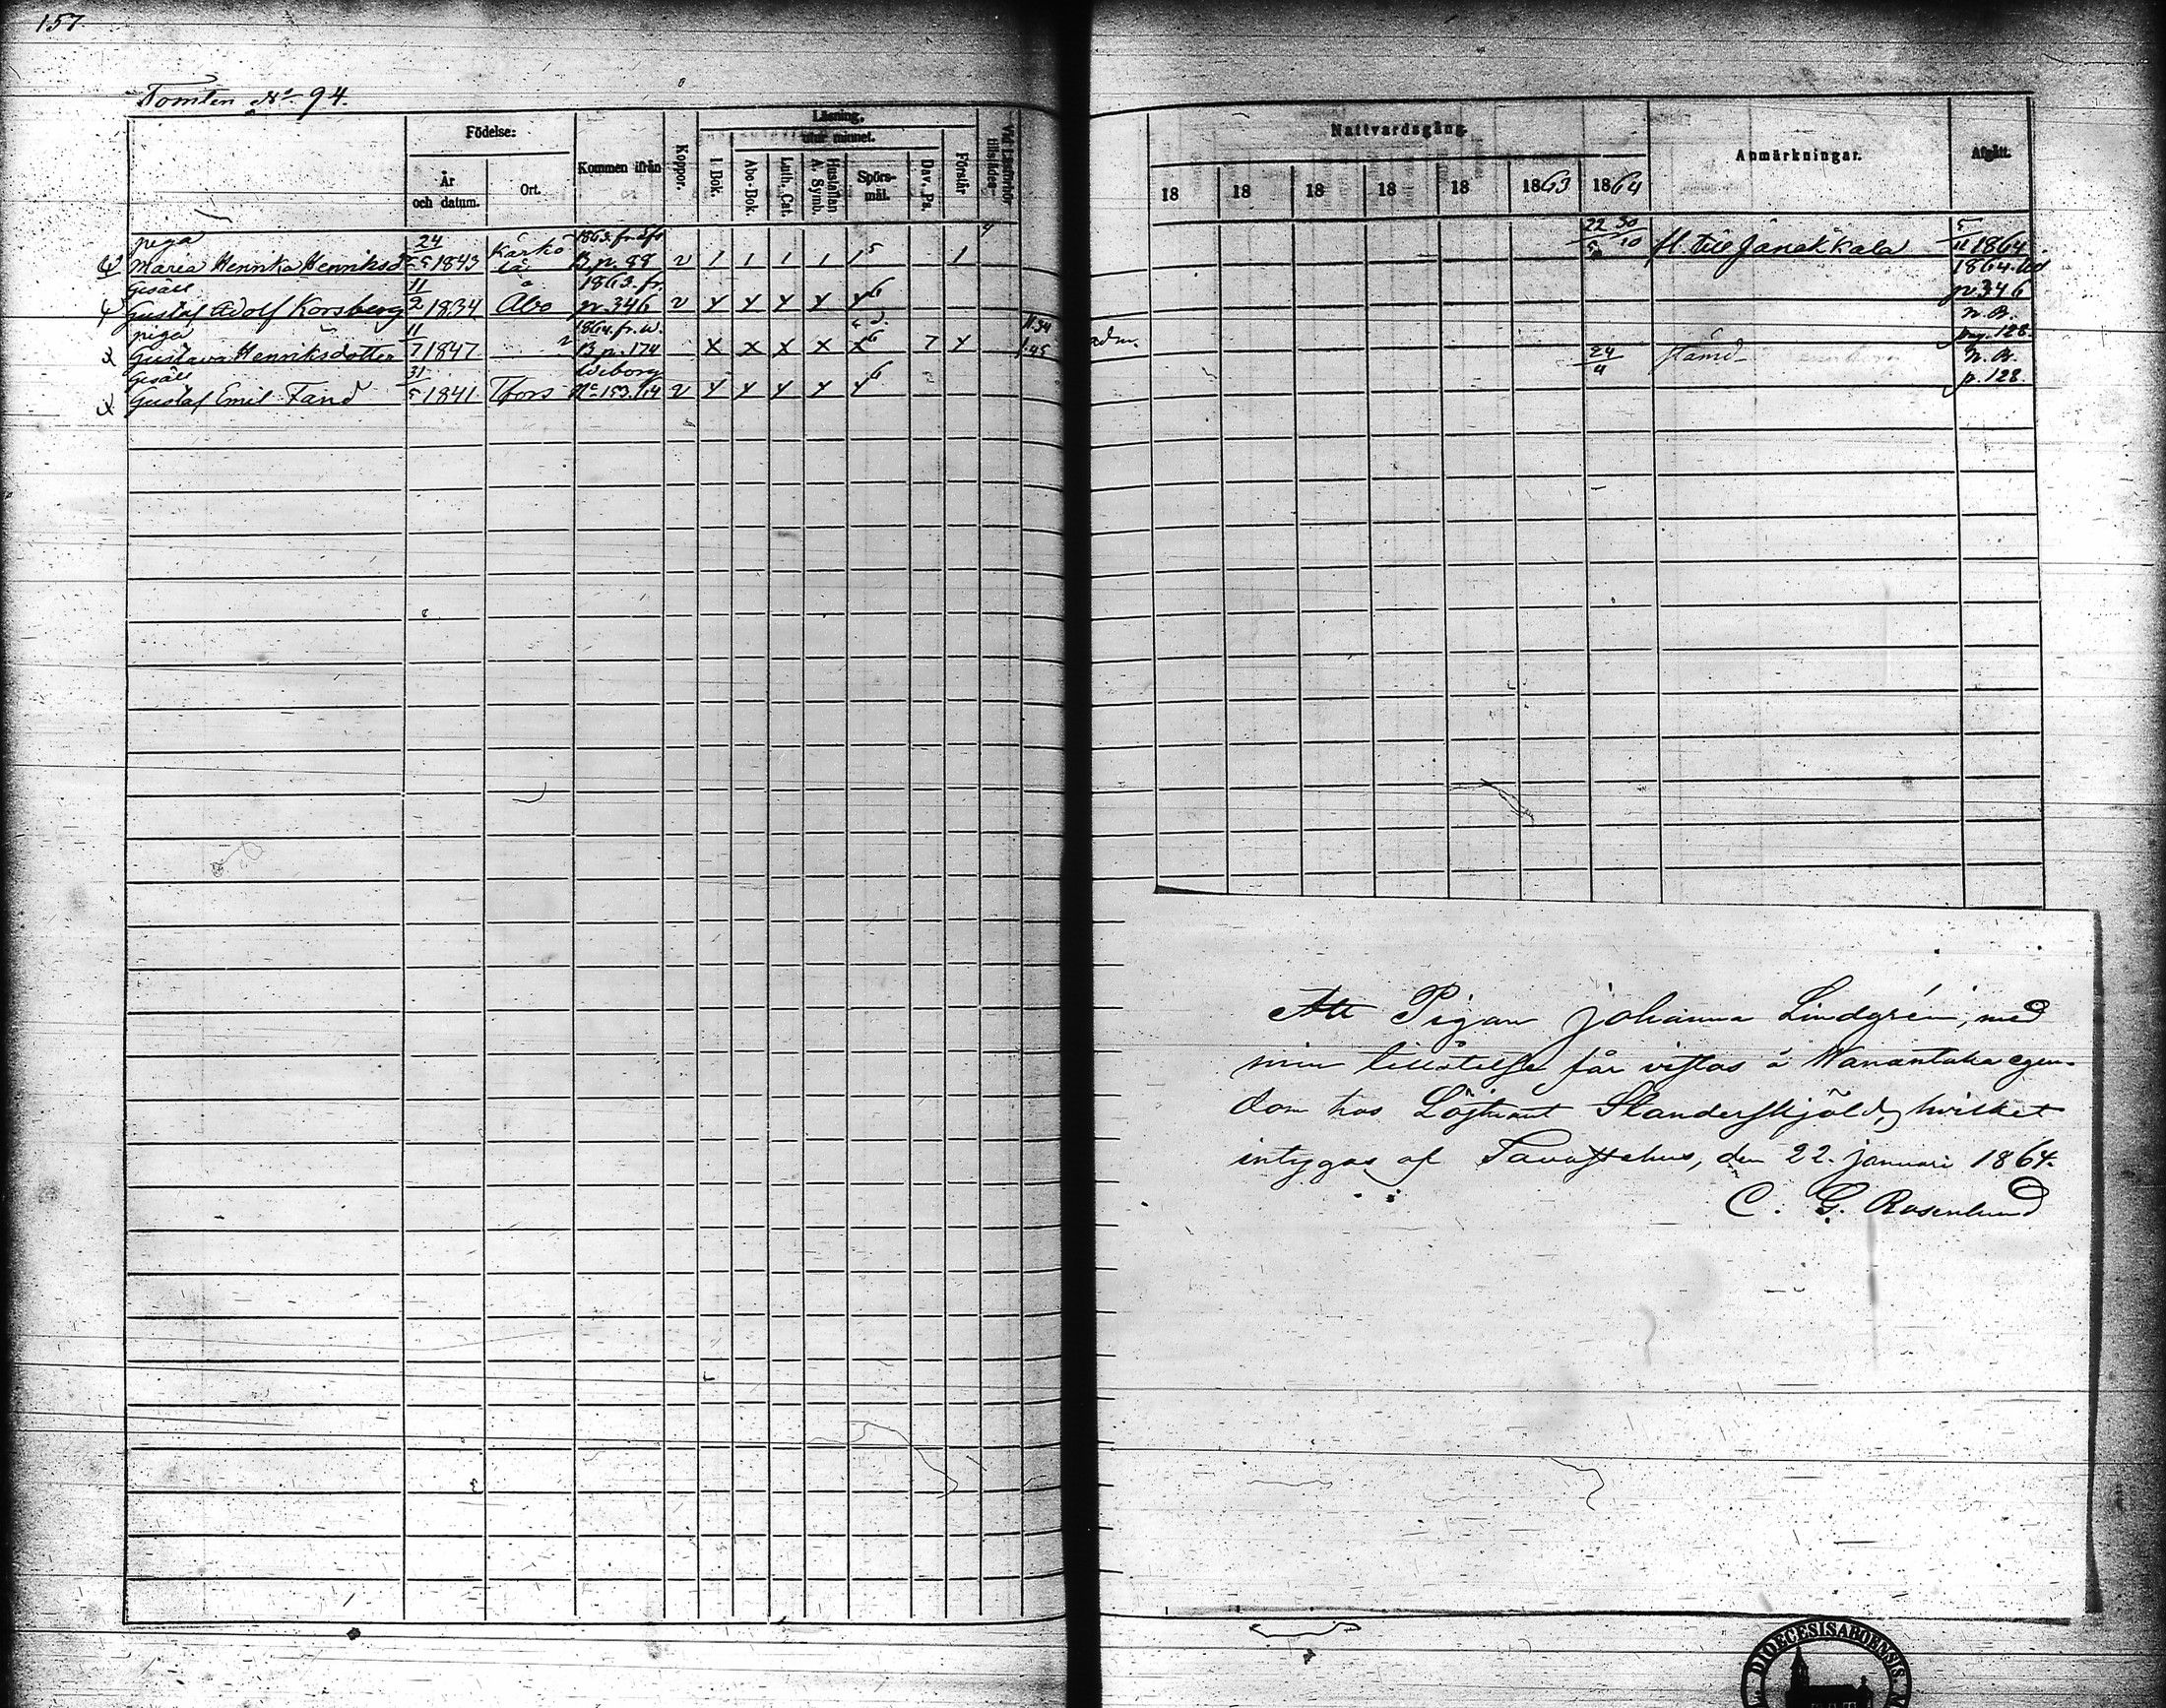 157
Tomten No 94.
Födelse: Kommen ifrån Koppor. Läsning. Nattvardsgång. Anmärkningar. Afgått.
utur minnet.
År och datum. Ort. I. Bok. Abc-Bok. Luth. Cat. Hustaflan A. Symb. Spörsmål. Dav. Ps. Förstår Vid Läseförhör tillstädes
18 18 18 18 18 1863 1864
piga 24 Kärkö 1863. fr. 22 30 5
Maria Henrika Henriksd 5 1843 lä B. p. 88 v 1 1 1 1 1 5 1 5 10 fl. till Janakkala 11 1864
Gesäll 11 1863. fr. 1864.
Gustaf Adolf Korsberg 2 1834 Åbo p. 346 v y y y y y 6 p. 346
piga 11 1864. fr. w. N. B.
Gustava Henriksdotter 7 1847 B. p. 174 x x x x x 6 7 y 1.45 24 4 pag. 128.
Gesäll 31 Wiborg N. B.
Gustaf Emil Tand 5 1841. Tfors No 153. 1/4 v y y y y y 6 p. 128.
Att Pigan Johanna Lindgrén, med
min tillåtelse får vistas å Wanantaka egen-
dom hos Löjtnant Standerskjöld, hvilket
intygas af Tavastehus, den 22. Januari 1864.
C. G. Rosenlund
DIOECESIS ABOENSIS